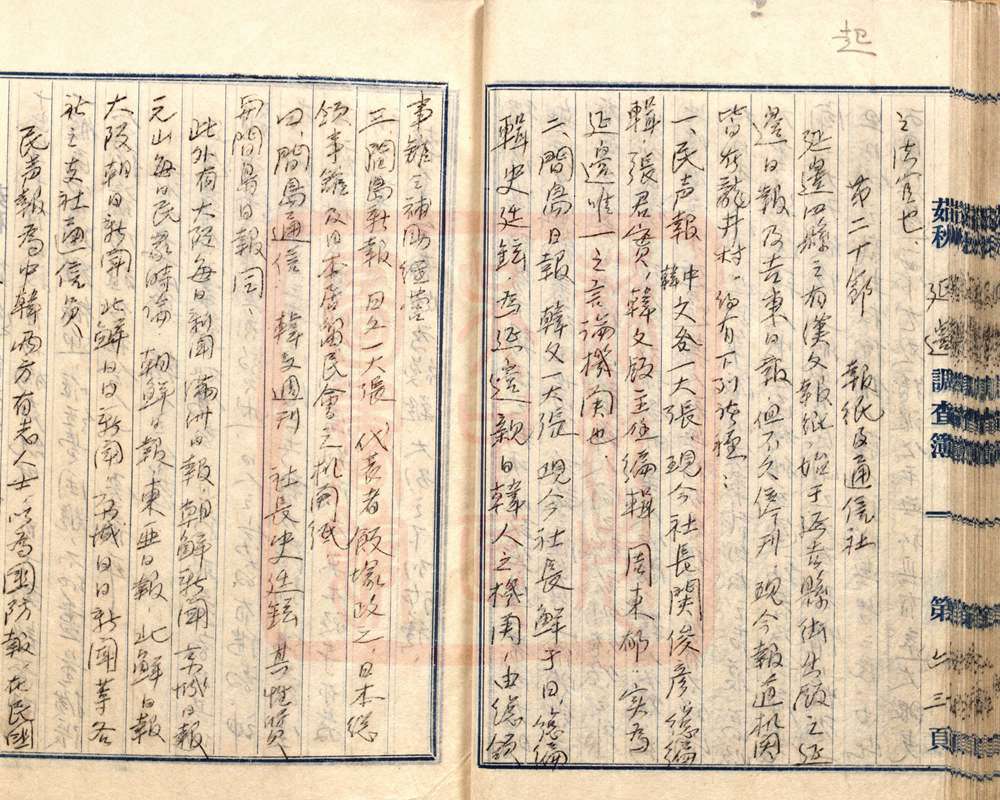 起
之法官也、
第二十節　報紙及通信社
延邊四縣之有漢文報紙、始于延吉縣街出版之延
邊日報及吉東日報、但不久停刊、現今報道机関
皆在龍井村。約有下列諸種：
一、民声報　中韓文各一大張、現今社長関俊彦、總編
輯、張君實、韓文版主任編輯　周東郁　实為
延邊唯一之言論機関也、
二、間島日報　韓文一大張　現今社長鮮于日、總編
輯史廷鉉、為延邊親日韓人之機関、由總領
茹秋　延邊調查簿　一　第六三頁
事館之補助經营
三、間島新報　日文一大張　代表者飯塚政之、日本總
領事館及日本居留民會之机関紙
四、間島通信、韓文週刊　社長史廷鉉　其性質
與間島日報同
此外有大阪每日新聞、滿洲日報、朝鮮新聞　京城日報
元山每日　民衆時論　朝鮮日報、東亜日報　北鮮日報
大阪朝日新聞　北鮮日日新聞　京城日日新聞等各
社之支社通信員
民声報為中韓両方有志人士、以為国防報、在民国